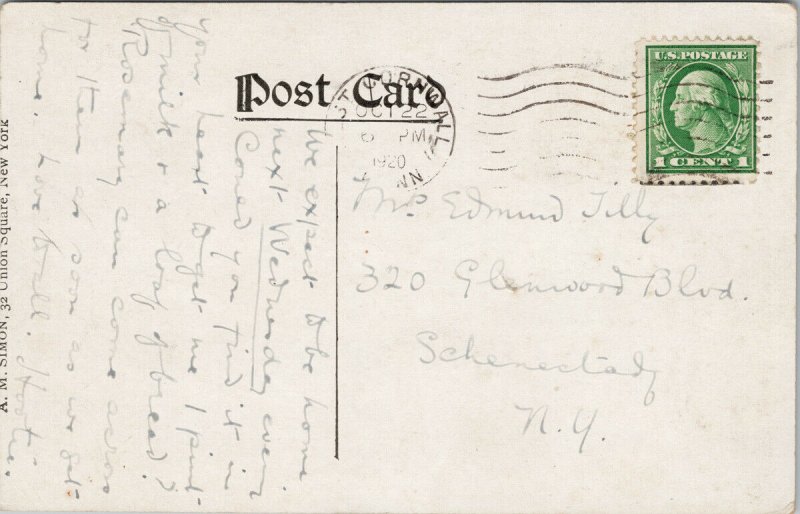 Post Card
T CORNWALL
OCT 22
6 PM
1920
CONN
U.S. POSTAGE
1 CENT 1
Mrs. Edmund Tilly
320 Glenwood Blvd.
Schenectady
N.Y.
We expect to be home
next Wednesday eve.
Could you find it in
your heart to get me 1 pint
of milk & a loaf of bread?
Rosemary can come across
to them as soon as we get
home. Love to all.
A. M. SIMON, 32 Union Square, New York